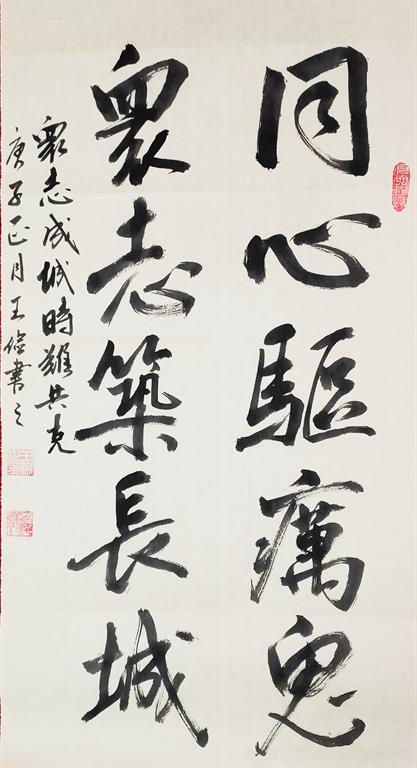 同心驅癘鬼
衆志築長城
衆志成城時難共克
庚子正月王俭書之